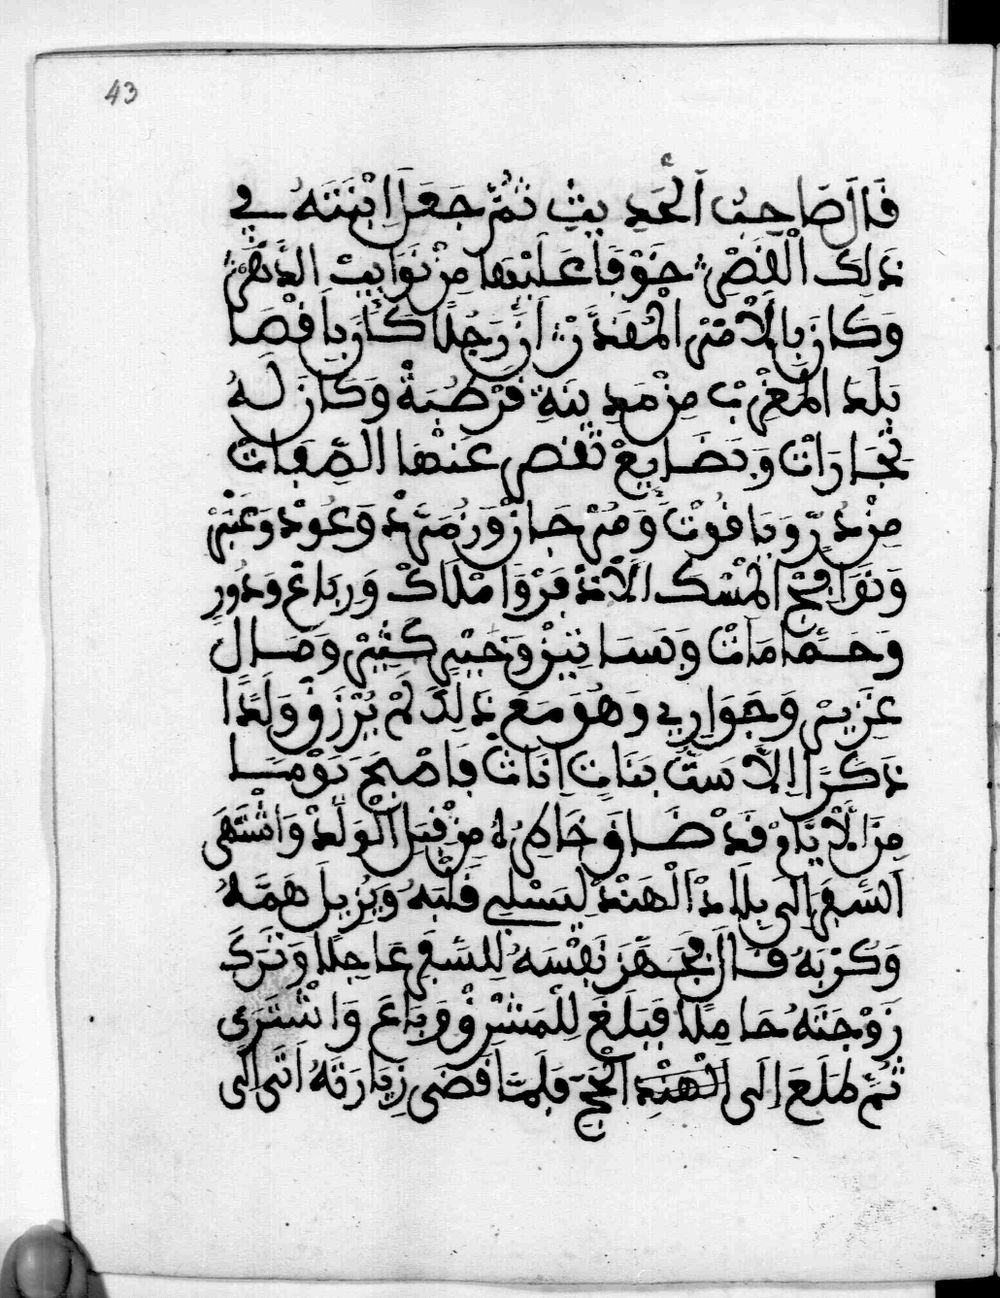 43
قَالَ صَاحِبُ الْحَدِيثِ ثُمَّ جَعَلَ ابْنَتَهُ فِي
ذَلِكَ الْقَصْرِ خَوْفًا عَلَيْهَا مِنْ نَوَايِبِ الدَّهْرِ
وَكَانَ بِالْأَمْرِ الْمُقَدَّرْ أَنَّ رَجُلًا كَانَ بِأَقْصَا
بَلَدِ الْمَغْرِبْ مِنْ مَدِينَةِ قَرْطُبَةْ وَكَانَ لَهُ
تْجَارَاتْ وَبَضَايِعْ تَقْصُرُ عَنْهَا الصِّفَاتْ
مِنْ دُرٍّ وَيَاقُوتْ وَمُرْجَانْ وَزُمُرُّدْ وَعُودْ وَعَنْبَرْ
وَنَوَافِحْ الْمِسْكْ الْأَذْفَرْ وَامْلَاكْ وَرِبَاعْ وَدُورِ
وَحَمَّامَاتْ وَبَسَاتِينْ وَخَيْرٍ كَثِيرْ وَمَالٍ
غَزِيرْ وَجَوَارِي وَهُوَ مَعَ ذَلِكَ لَمْ يُرْزَقْ وَلَدًا
ذَكَرًا إِلَّا سَتَّ بَنَاتِ انَاثْ فَاصْبَحَ يَوْمًا
مِنَ الْأَيَّامْ قَدْ ضَاقَ خَاطِرُهُ مِنْ قِبَلِ الْوَلَدْ وَاشْتَهَى
السَّفَرَ إِلَى بِلَادْ الْهَنْدْ لِيُسْلِي قَلْبَهُ وَيُزِيلَ هَمَّهُ
وَكُرْبَهُ قَالَ فَجَهَّزَ نَفْسَهُ لِلسَّفَرِ عَاجِلًا وَتَرَكَ
زَوْجَتَهُ حَامِلًا فَبَلَغَ لِلْمَشْرِقْ وَبَاعَ وَاشْتَرَى
ثُمَّ طَلَعَ إِلَى الْهَنْدِ الْحَجّ فَلَمَّا قَضَى زِيَارَتَهُ اتَى إِلَى